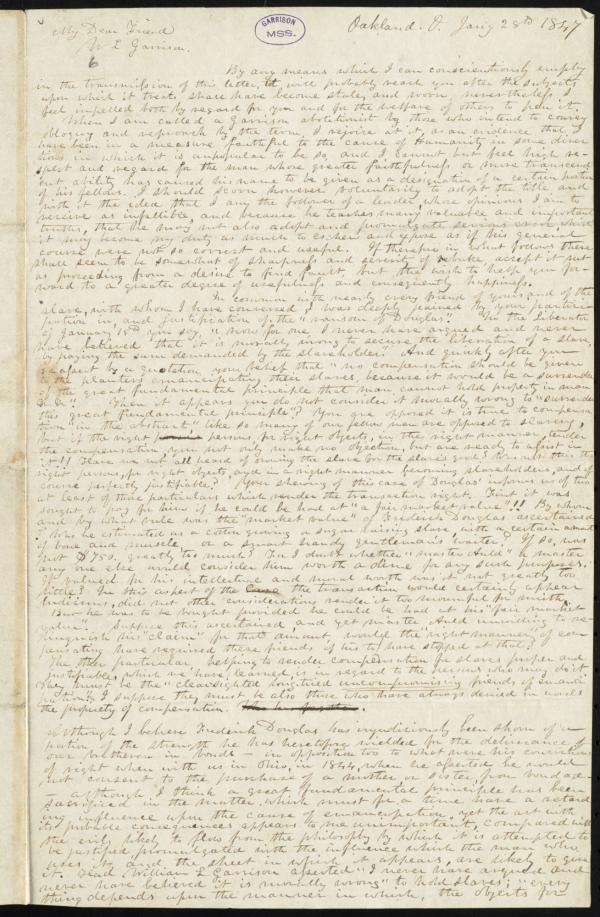 GARRISON
MSS.
Oakland. O. Jany 28th 1847
My Dear Friend
W L Garrison.
By any means which I can conscientiously employ
in the transmission of this letter, it will probably reach you after the subjects
upon which it treats, shall have become stale, and worn, nevertheless I
feel impelled both by regard for you and for the welfare of others to pen it.
When I am called a Garrison abolitionist by those who intend to convey
obloquy and reproach by the term, I rejoice at it, as an evidence that I
have been in a measure faithful to the cause of Humanity in some direc
tions in which it is unpopular to be so, and I cannot but feel high re-
spect and regard for the man whose greater faithfulness and more transcend
ent ability has caused his name to be given as a designation of a certain portion
of his fellows. I should scorn however voluntarily to adopt the title and
with it the idea that I am the follower of a leader, whose opinions I am to
receive as infallible, and because he teaches many valuable and important
truths, that he may not also adopt and promulgate serious errors which
it may become my duty as much to eschew and expose as if his general
course were not so correct and useful. If therefore in what follows there
shall seem to be somewhat of sharpness and severity of rebuke, accept it not
as proceeding from a desire to find fault, but the wish to help you for-
ward to a greater degree of usefulness and consequently happiness.
In common with nearly every friend of yours and of the
slave, with whom I have conversed, I was deeply pained by your partici-
pation in, and justification of the "ransom of Douglas". In the Liberator
of January 15th you say, "now for one I never have argued and never
have believed that it is morally wrong to secure the liberation of a slave,
by paying the sum demanded by the slaveholder." And quickly after you
reassert by a quotation, your belief that "no compensation should be given
to the planters emancipating their slaves, because it would be a surrender
of the great fundamental principle that man cannot hold property in man
&c &c". Then it appears you do not consider it morally wrong to "surrender
this great fundamental principle"? You are opposed it is true to compensa
tion "in the abstract" like so many of our fellow men are opposed to slavery,
but if the right persons, for right objects, in the right manner, tender
the compensation, you not only make no objection, but are ready to assist in
it!! Have we not all heard of owning the slave for the slave's good? Was not this the
right persons, for right objects, and in a right manner becoming slaveholders, and of
course perfectly justifiable? Your shewing of this case of Douglas' informs us of two
at least of those particulars which render the transaction right. First it was
sought to pay for him if he could be had at "a fair market value"!! By whom
and by what rule was the "market value" of Frederick Douglas ascertained
? Was he estimated as a cotton growing or sugar raising slave with a certain amount
of bone and muscle or a smart handy gentleman's waiter? If so, was
not $750, greatly too much? For I doubt whether "master Auld" or master
any one else would consider him worth a dime for any such purposes.
If valued for his intellectual and moral worth was it not greatly too
little? In this aspect of the case the transaction would certainly appear
ludicrous, did not other considerations render it too mournful for mirth.
But he was to be bought provided he could be had at his "fair market
value". Suppose this ascertained and yet master Auld unwilling to re-
linquish his "claim" for that amount, would the right manner of com
pensating have required these friends of his to have stopped at that?
The other particular, helping to render compensation for slaves proper and
justifiable, which we have learned, is in regard to the persons who may do it
They must be the "clearsighted long tried uncompromising friends of emanci
pation". I suppose they must be also those who have always denied in words
the propriety of compensation.
Although I believe Frederick Douglas has injudiciously been shorn of a
portion of the strength he has heretofore wielded for the deliverance of
our brethren in bonds — in opposition too to what were his convictions
of right when with us in Ohio, in 1844, when he asserted he would
not consent to the purchase of a mother, or sister, from bondage
— although I think a great fundamental principle has been
sacrificed in the matter, which must for a time have a retard
ing influence upon the cause of emancipation, yet the act with
its probable consequences appears to me unimportant, compared with
the evil, likely to flow from the philosophy by which it is attempted to
be justified, promulgated with the influence which the man who
uses it, and the sheet in which it appears, are likely to give
it. Had William L Garrison asserted "I never have argued and
never have believed it is morally wrong" to hold slaves; "every
thing depends upon the manner in which, the objects for